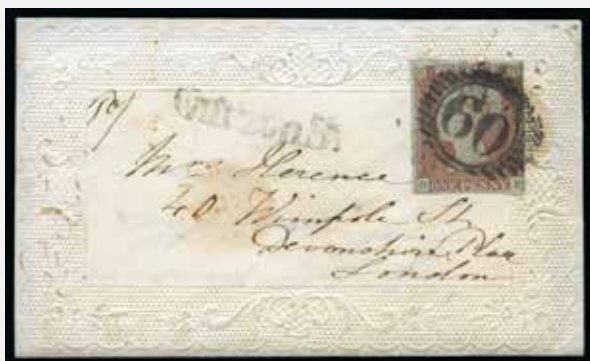 60
ONE PENNY
Mrs Florence
40 Wimpole St
Devonshire Place
London